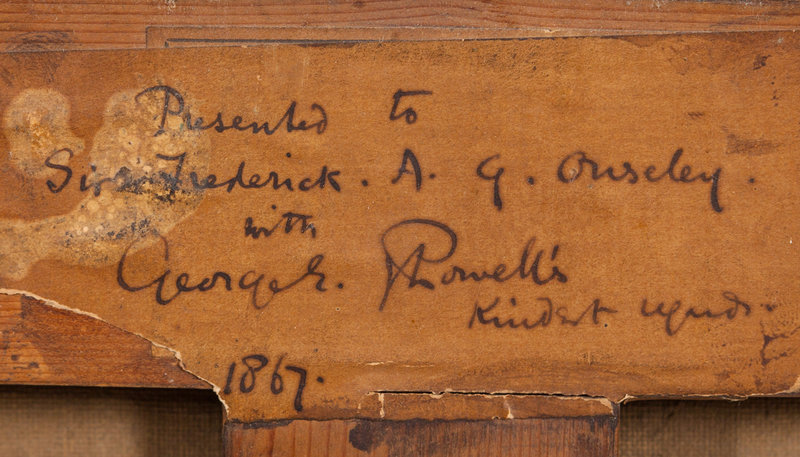 Presented to
Sir Frederick. A. G. Ouseley.
with
George E. J Powell's
Kindest regards.
1867.